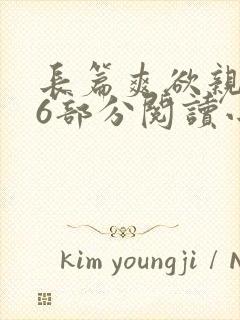 長篇爽欲親
6部分閱讀
kim youngji / N